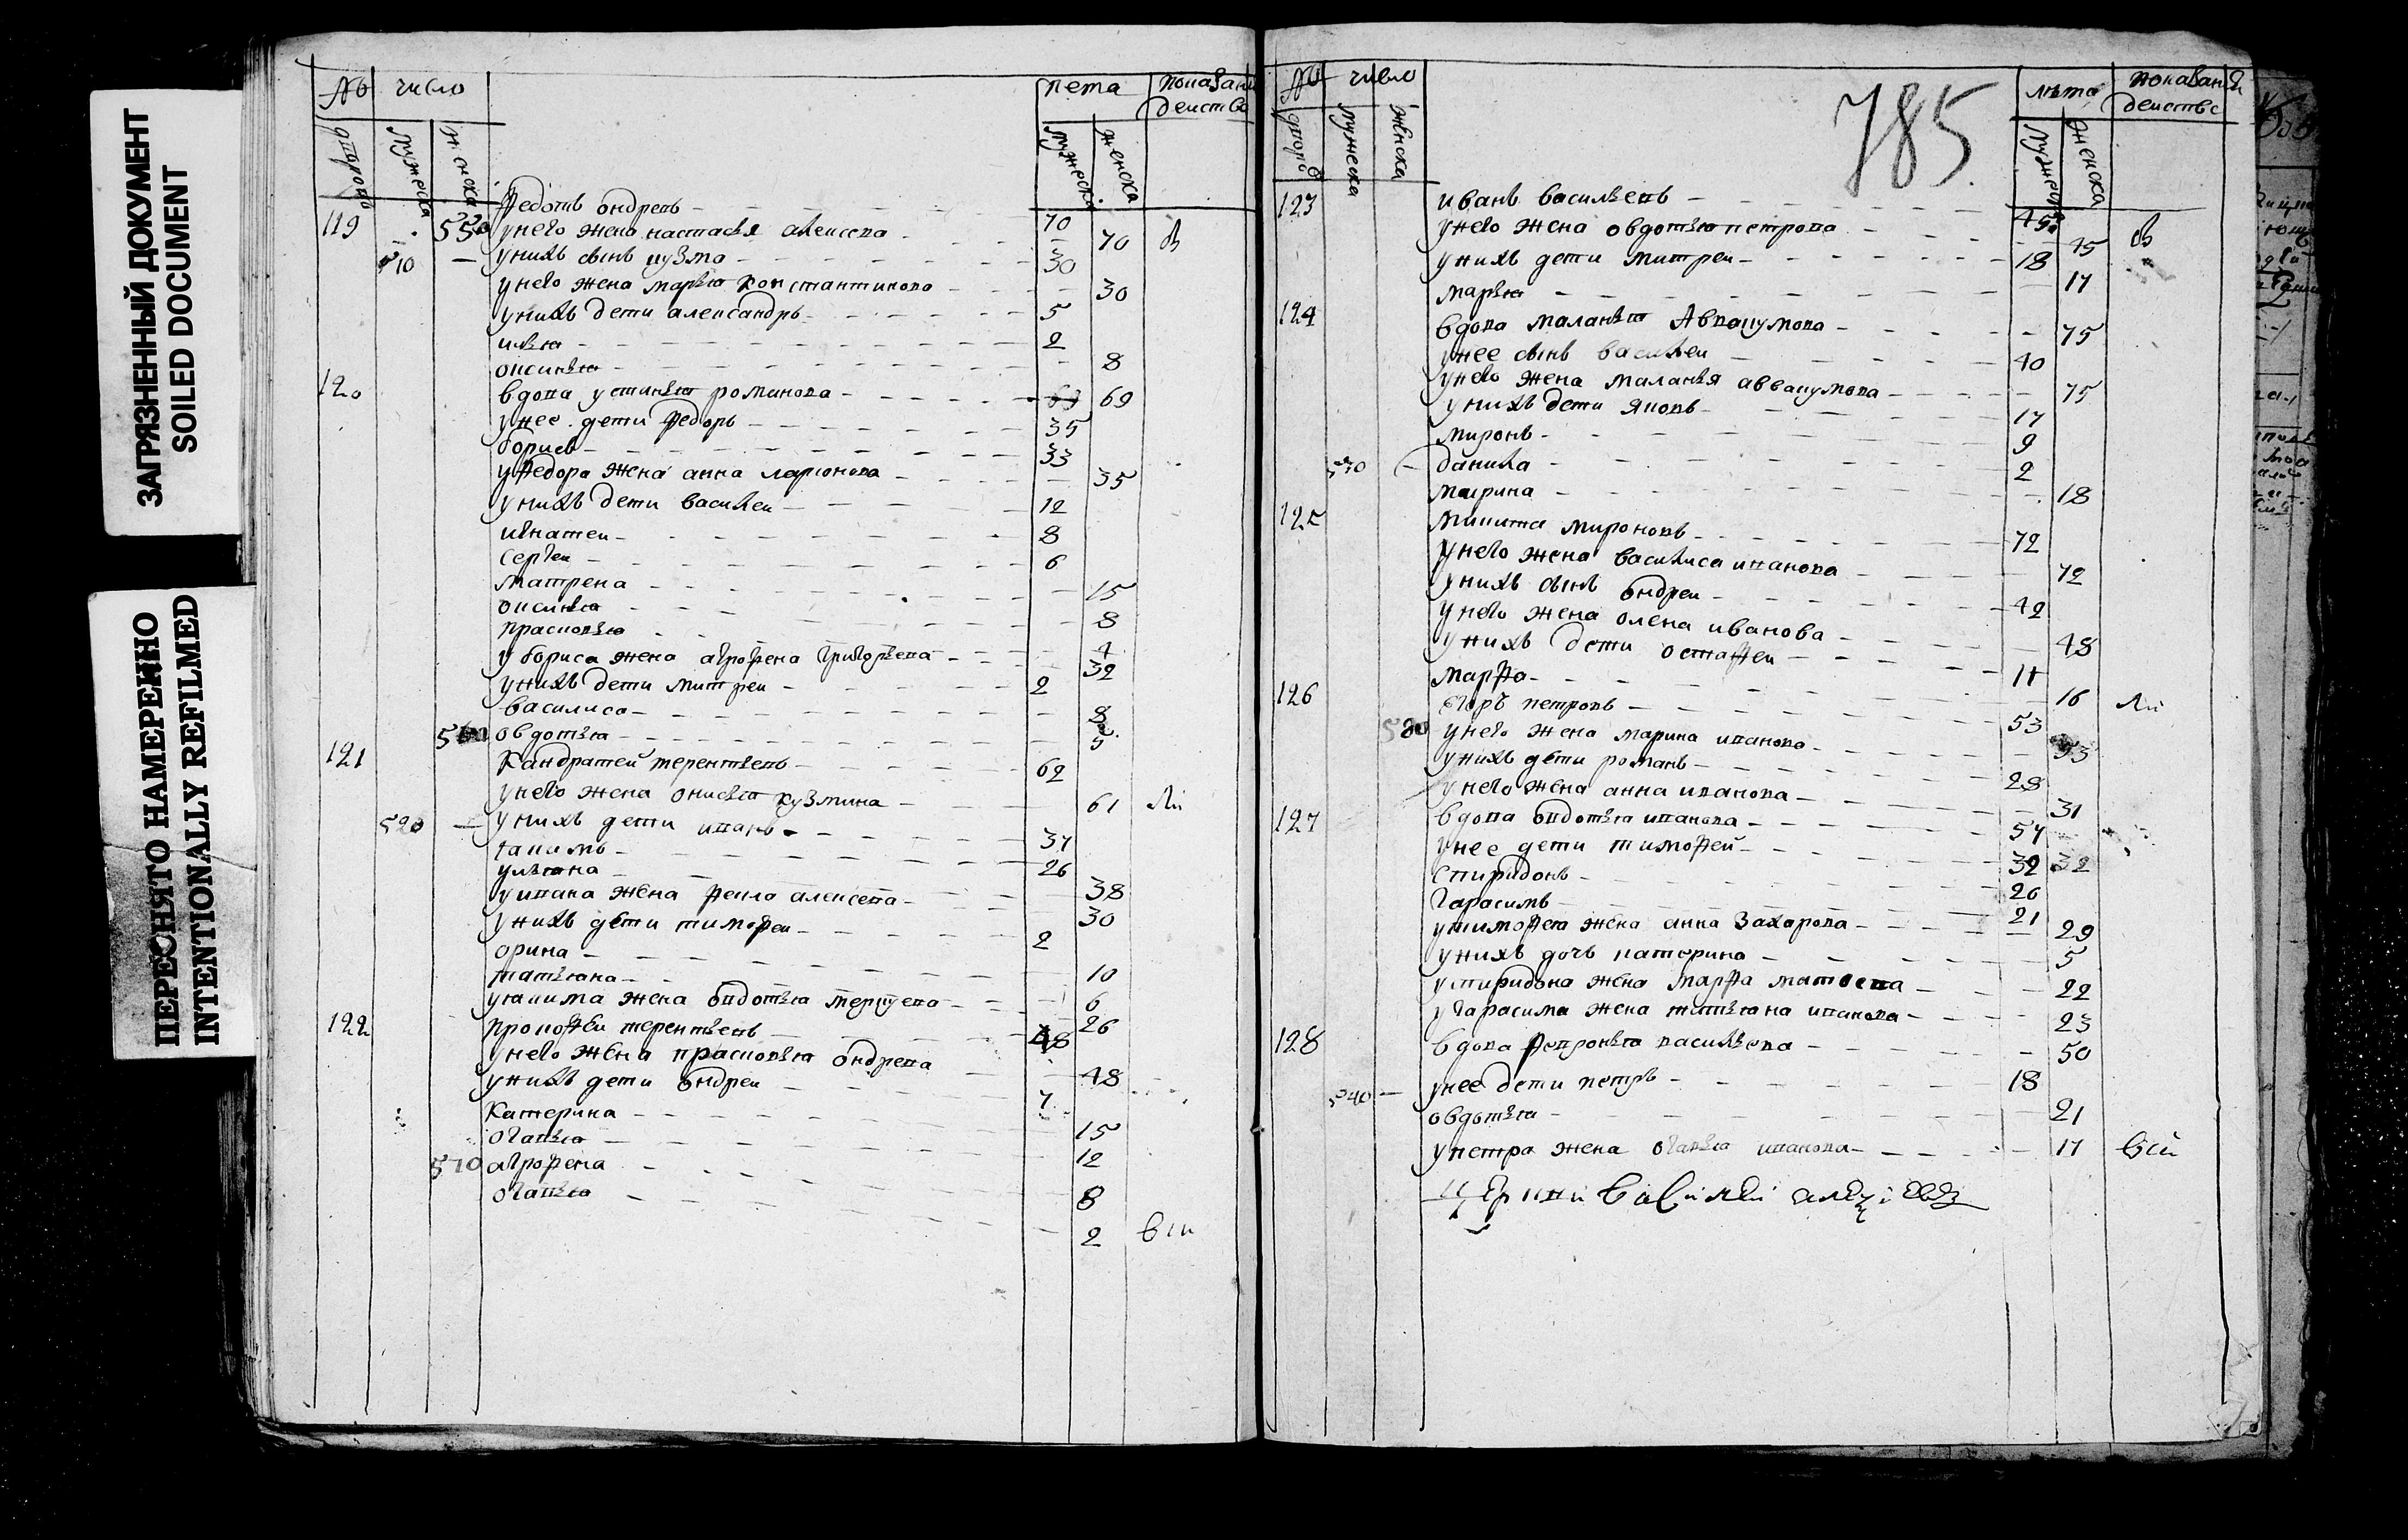 ЗАГРЯЗНЕННЫЙ ДОКУМЕНТ
SOILED DOCUMENT
ПЕРЕСНЯТО НАМЕРЕННО
INTENTIONALLY REFILMED
№ число лета показани действо
дворовъ мужеска женска мужеска женска
Федотъ ондревъ 70
119 550 у него жена настасья алексева 70
510 у нихъ сынъ кузма 30
у него жена марья константинова 30
у нихъ дети александръ 5
илья 2
оксинья 8
120 вдова устинья романова 69
у нее дети федоръ 35
борисъ 33
у федора жена анна ларионова 35
у нихъ дети василеи 12
игнатеи 8
сергеи 6
матрена 15
оксинья 8
прасковья 4
у бориса жена агрофена григорьева 32
у нихъ дети митреи 2
василиса 8
овдотья 5
121 Кандратей терентьевъ 62
у него жена онисья кузмина 61
520 у нихъ дети иванъ 37
якимъ 26
ульяна 38
у ивана жена фекла алексева 30
у нихъ дети тимофеи 2
орина 10
татьяна 6
у якима жена овдотья меркулева 26
122 прокофеи терентьевъ 48
у него жена прасковья ондрева 48
у нихъ дети ондреи 7
Катерина 15
огафья 12
570 агрофена 8
огафья 2
785
№ число лѣта показаний действе
дворовъ мужеска женска мужеска женска
123 иванъ васильевъ 45
у него жена овдотья петрова 45
у нихъ дети митреи 18
марья 17
124 вдова маланья Аввакумова 75
у нее сынъ василеи 40
у него жена маланья аввакумова 75
у нихъ дети яковъ 17
миронъ 9
530 данила 2
марина 18
125 микита мироновъ 72
у него жена василиса иванова 72
у нихъ сынъ ондреи 42
у него жена олена иванова 48
у нихъ дети остафеи 11
марфа 16
126 егоръ петровъ 53
580 у него жена марина иванова 53
у нихъ дети романъ 28
у него жена анна иванова 31
127 вдова овдотья иванова 57
у нее дети тимофей 32 32
спиридонъ 26
гарасимъ 21
у тимофея жена анна захарова 29
у нихъ дочь катерина 5
у спиридона жена марфа матвева 22
у гарасима жена татьяна иванова 23
128 вдова февронья васильева 50
540 у нее дети петръ 18
овдотья 21
у петра жена огафья иванова 17